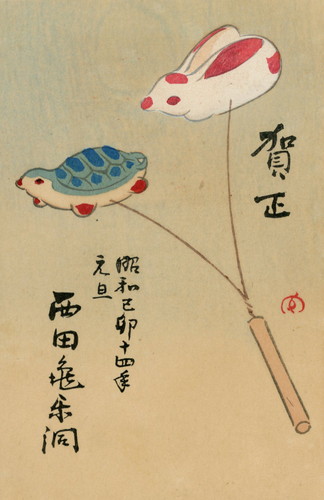 賀正
昭和己卯十四年
元旦
西田亀楽洞